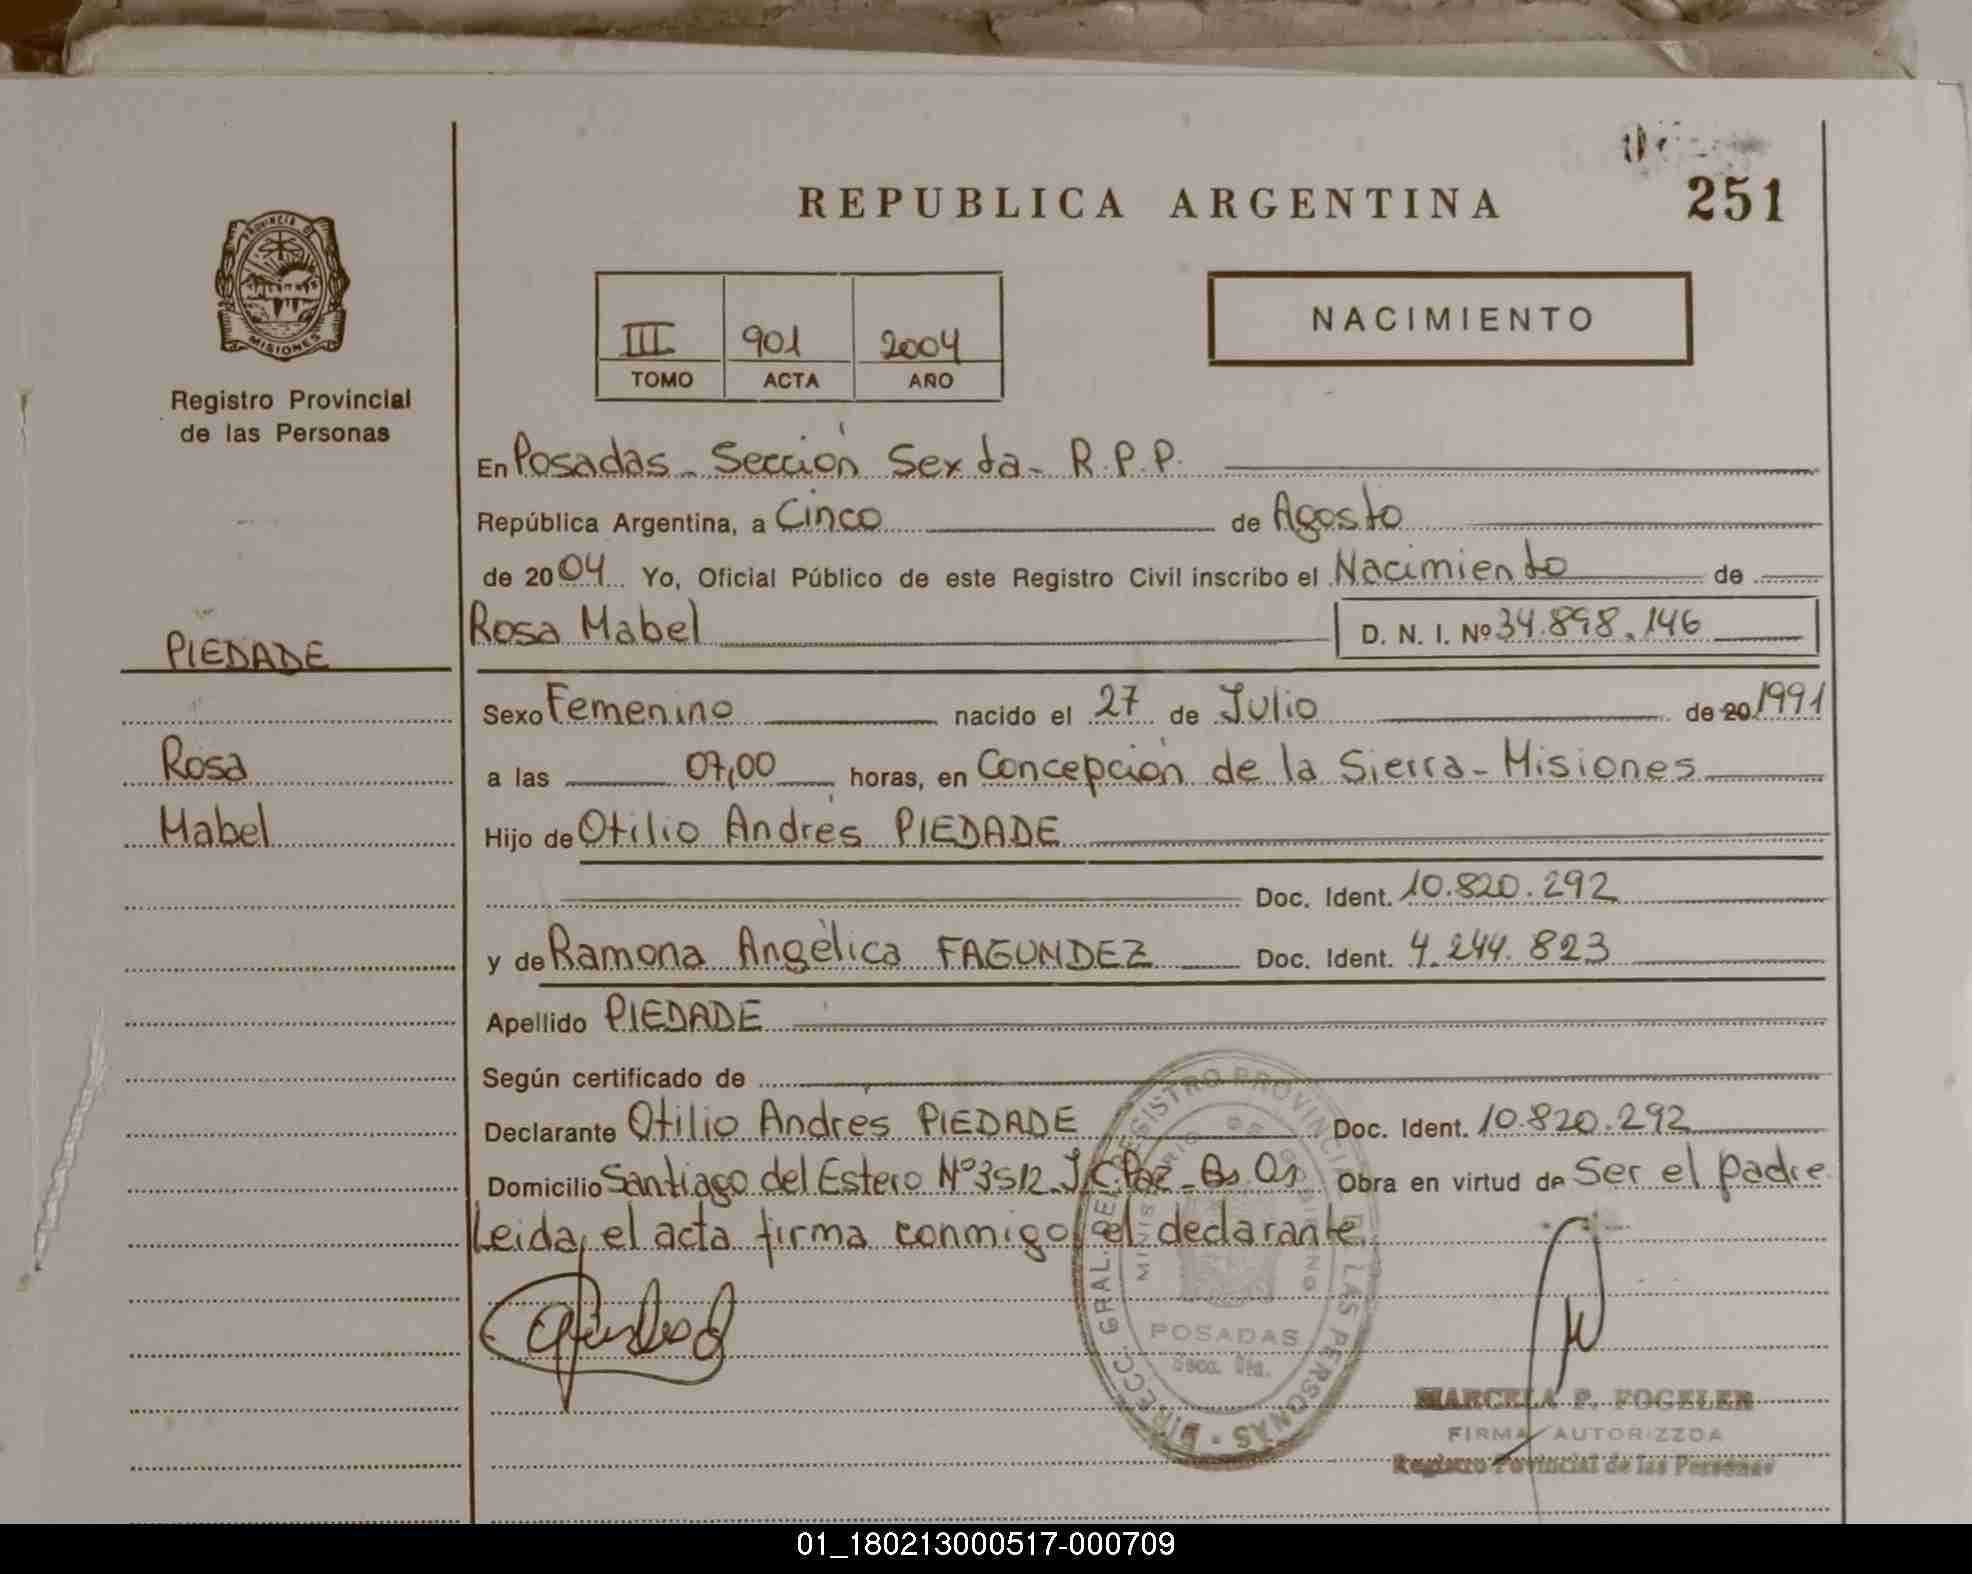 REPUBLICA ARGENTINA
251
PROVINCIA DE
MISIONES
Registro Provincial
de las Personas
III 901 2004
TOMO ACTA AÑO
NACIMIENTO
En Posadas - Sección Sexta - R.P.P.
República Argentina, a Cinco de Agosto
de 2004 Yo, Oficial Público de este Registro Civil inscribo el Nacimiento de
Rosa Mabel D. N. I. Nº 34.898.146
PIEDADE
Rosa
Mabel
Sexo Femenino nacido el 27 de Julio de 20 1991
a las 07,00 horas, en Concepción de la Sierra - Misiones
Hijo de Otilio Andrés PIEDADE
Doc. Ident. 10.820.292
y de Ramona Angélica FAGUNDEZ Doc. Ident. 4.244.823
Apellido PIEDADE
Según certificado de
Declarante Otilio Andrés PIEDADE Doc. Ident. 10.820.292
Domicilio Santiago del Estero Nº 3512 J.C. Paz - Bs. As. Obra en virtud de Ser el padre
Leida, el acta firma conmigo el declarante
DIRECC. GRAL. REGISTRO PROVINCIAL DE LAS PERSONAS
MINISTERIO DE GOBIERNO
POSADAS
Secc. 6ta.
MARCELA P. FOGELER
FIRMA AUTORIZZDA
Registro Provincial de las Personas
01_180213000517-000709